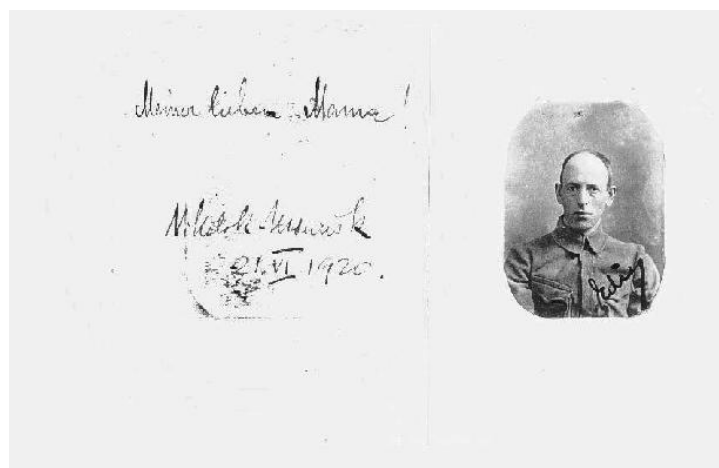 Meiner lieben Mama!
Nikolsk-Ussurisk
21. VI 1920.